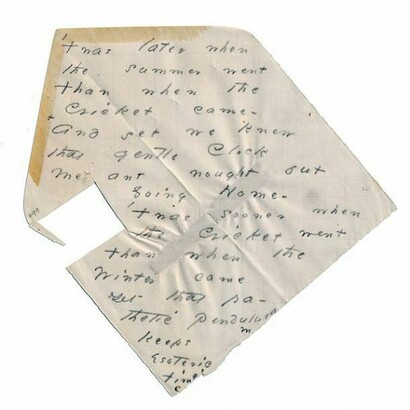 'Twas later when
the summer went
Than when the
Cricket came -
And yet we knew
that gentle Clock
meant nought but
Going Home -
'Twas sooner when
the Cricket went
than when the
Winter came
Yet that pa-
thetic Pendulum
keeps
Esoteric
Time